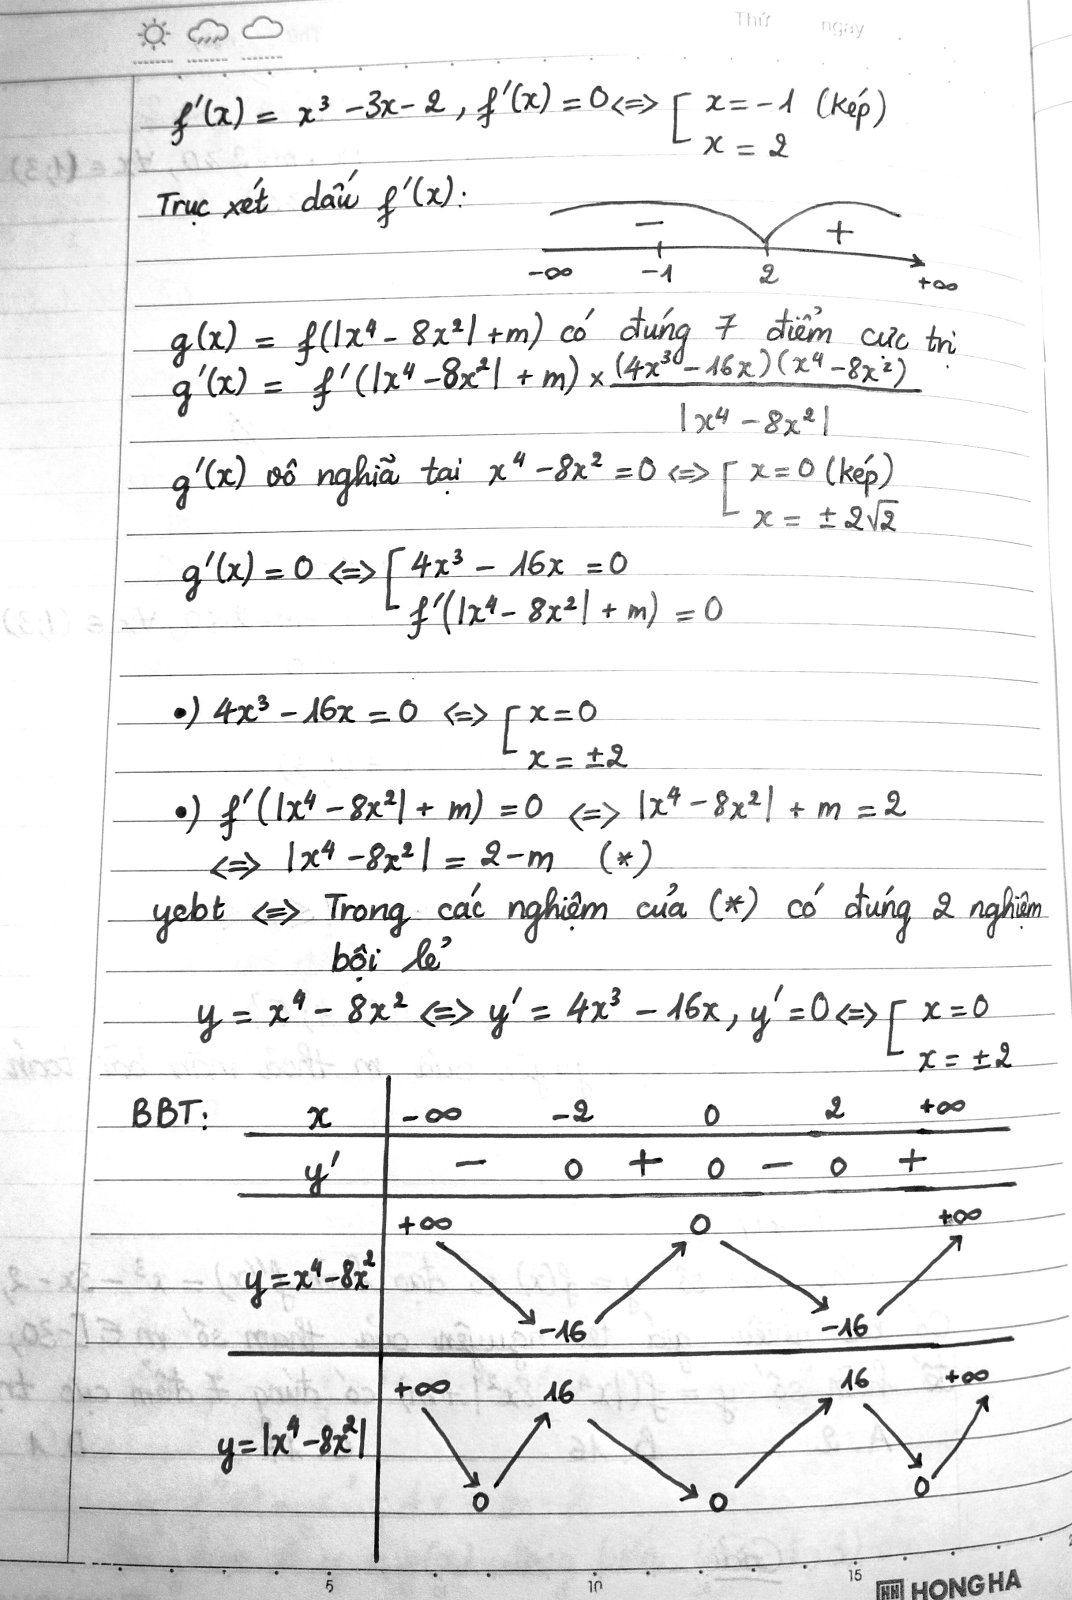 Thứ ngày
f'(x) = x³ - 3x - 2 , f'(x) = 0 <=> [ x = -1 (kép)
x = 2
Trục xét dấu f'(x):
- +
-∞ -1 2 +∞
g(x) = f(|x⁴ - 8x²| + m) có đúng 7 điểm cực trị
g'(x) = f'(|x⁴ - 8x²| + m) × (4x³ - 16x)(x⁴ - 8x²)
|x⁴ - 8x²|
g'(x) vô nghĩa tại x⁴ - 8x² = 0 <=> [ x = 0 (kép)
x = ± 2√2
g'(x) = 0 <=> [ 4x³ - 16x = 0
f'(|x⁴ - 8x²| + m) = 0
•) 4x³ - 16x = 0 <=> [ x = 0
x = ±2
•) f'(|x⁴ - 8x²| + m) = 0 <=> |x⁴ - 8x²| + m = 2
<=> |x⁴ - 8x²| = 2 - m (*)
ycbt <=> Trong các nghiệm của (*) có đúng 2 nghiệm
bội lẻ
y = x⁴ - 8x² <=> y' = 4x³ - 16x, y' = 0 <=> [ x = 0
x = ±2
BBT: x -∞ -2 0 2 +∞
y' - 0 + 0 - 0 +
+∞ 0 +∞
y = x⁴ - 8x²
-16 -16
+∞ 16 16 +∞
y = |x⁴ - 8x²|
0 0 0
5 10 15
HH HONG HA